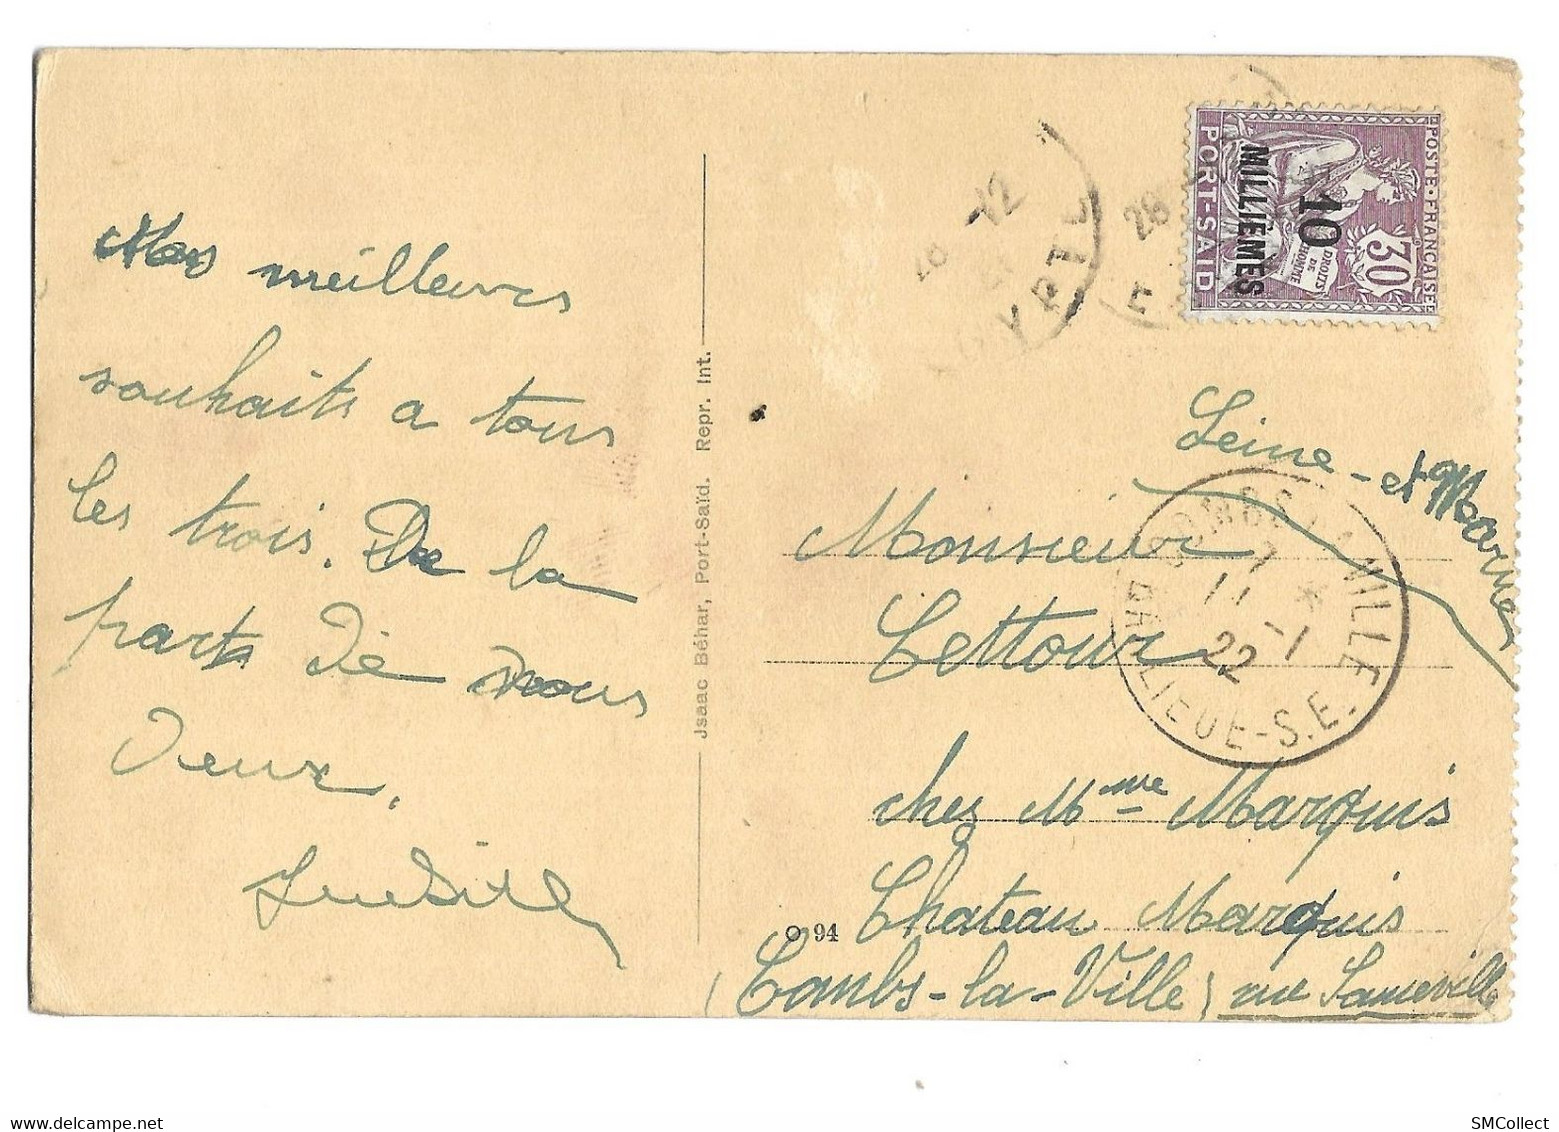 Nos meilleurs
souhaits a tous
les trois. De la
part de nous
deux.
Jsaac Béhar, Port-Saïd. Repr. Int.
94
28 -12
YPTE
28
POSTE FRANÇAISE
30
DROITS
DE
L'HOMME
10
MILLIÈMES
PORT-SAID
Seine-et Marne
COMBS LA VILLE
7
11 -1
22
*
LIEUE-S.E.
Monsieur
Lettour
chez Mme Marquis
Chateau Marquis
(Combs-la-Ville) rue
SMCollect